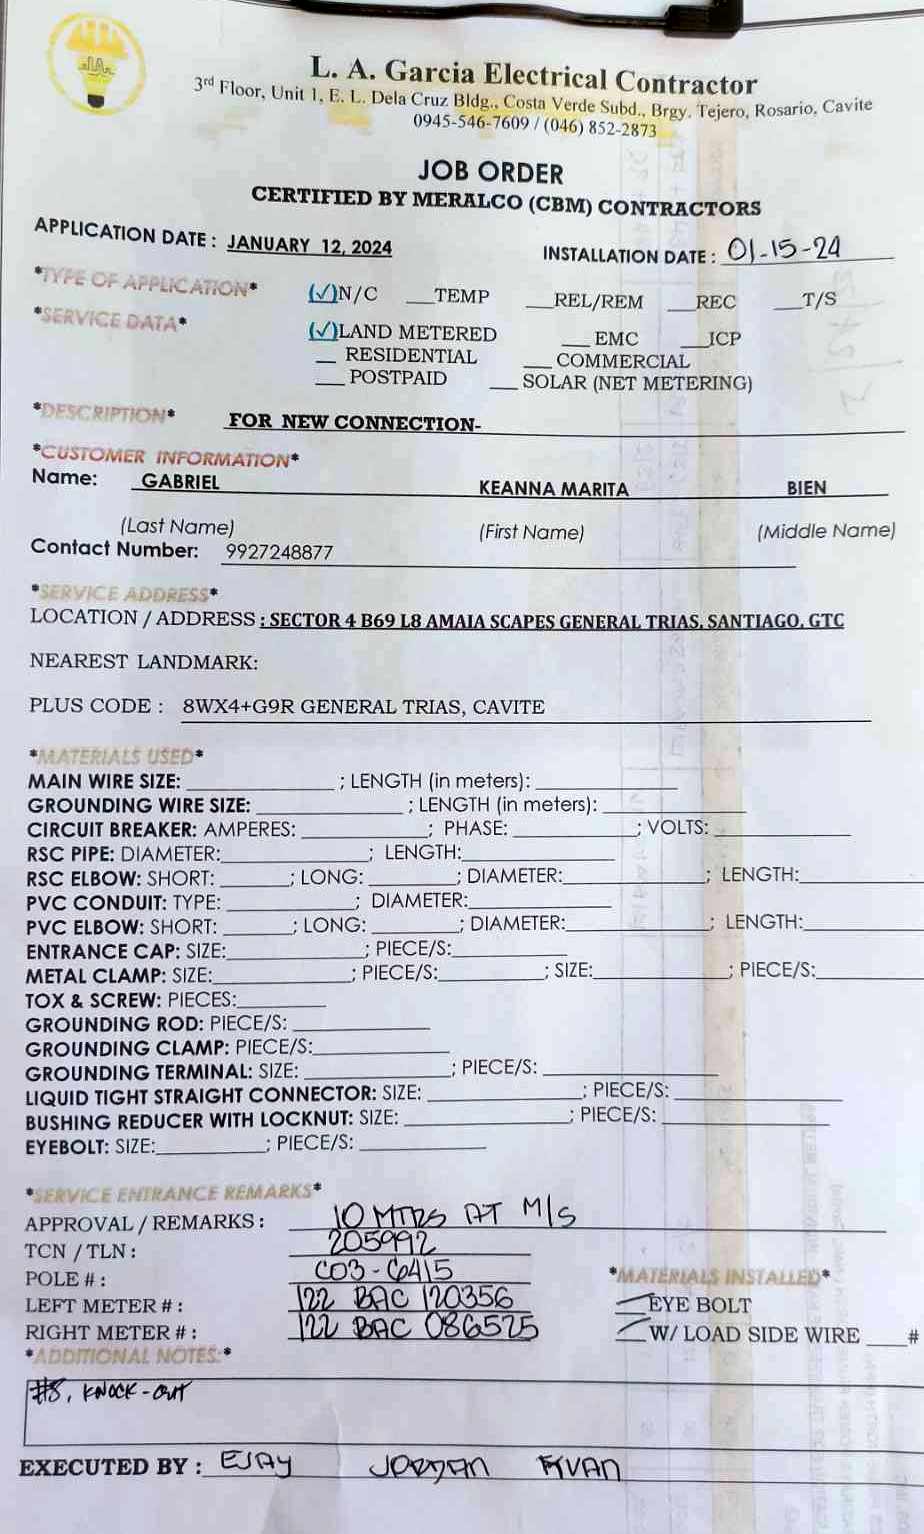 LAG
L. A. Garcia Electrical Contractor
3rd Floor, Unit 1, E. L. Dela Cruz Bldg., Costa Verde Subd., Brgy. Tejero, Rosario, Cavite
0945-546-7609 / (046) 852-2873
JOB ORDER
CERTIFIED BY MERALCO (CBM) CONTRACTORS
APPLICATION DATE : JANUARY 12, 2024 INSTALLATION DATE : 01-15-24
*TYPE OF APPLICATION* (✓)N/C ___TEMP ___REL/REM ___REC ___T/S
*SERVICE DATA* (✓)LAND METERED ___EMC ___ICP
___ RESIDENTIAL ___COMMERCIAL
___ POSTPAID ___ SOLAR (NET METERING)
*DESCRIPTION* FOR NEW CONNECTION-
*CUSTOMER INFORMATION*
Name: GABRIEL KEANNA MARITA BIEN
(Last Name) (First Name) (Middle Name)
Contact Number: 9927248877
*SERVICE ADDRESS*
LOCATION / ADDRESS : SECTOR 4 B69 L8 AMAIA SCAPES GENERAL TRIAS, SANTIAGO, GTC
NEAREST LANDMARK:
PLUS CODE : 8WX4+G9R GENERAL TRIAS, CAVITE
*MATERIALS USED*
MAIN WIRE SIZE: ___ ; LENGTH (in meters): ___
GROUNDING WIRE SIZE: ___ ; LENGTH (in meters): ___
CIRCUIT BREAKER: AMPERES: ___; PHASE: ___; VOLTS: ___
RSC PIPE: DIAMETER: ___; LENGTH: ___
RSC ELBOW: SHORT: ___; LONG: ___; DIAMETER: ___; LENGTH: ___
PVC CONDUIT: TYPE: ___; DIAMETER: ___
PVC ELBOW: SHORT: ___; LONG: ___; DIAMETER: ___; LENGTH: ___
ENTRANCE CAP: SIZE: ___; PIECE/S: ___
METAL CLAMP: SIZE: ___; PIECE/S: ___; SIZE: ___; PIECE/S: ___
TOX & SCREW: PIECES: ___
GROUNDING ROD: PIECE/S: ___
GROUNDING CLAMP: PIECE/S: ___
GROUNDING TERMINAL: SIZE: ___; PIECE/S: ___
LIQUID TIGHT STRAIGHT CONNECTOR: SIZE: ___; PIECE/S: ___
BUSHING REDUCER WITH LOCKNUT: SIZE: ___; PIECE/S: ___
EYEBOLT: SIZE: ___; PIECE/S: ___
*SERVICE ENTRANCE REMARKS*
APPROVAL / REMARKS : 10 MTRS AT M/S
TCN / TLN : 205992
POLE # : C03-6415 *MATERIALS INSTALLED*
LEFT METER # : 122 BAC 120356 EYE BOLT
RIGHT METER # : 122 BAC 086525 W/ LOAD SIDE WIRE ___#
*ADDITIONAL NOTES:*
#8, KNOCK-OUT
EXECUTED BY : EJAY JORDAN RVAN